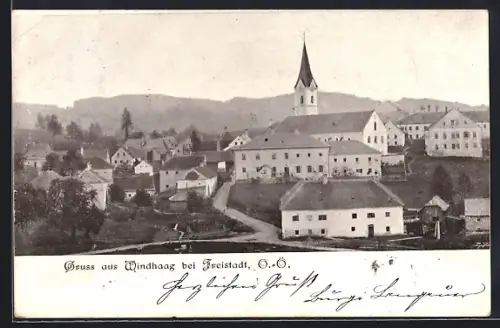 Gruss aus Windhaag bei Freistadt, O.-Ö.
herzlichen Gruß